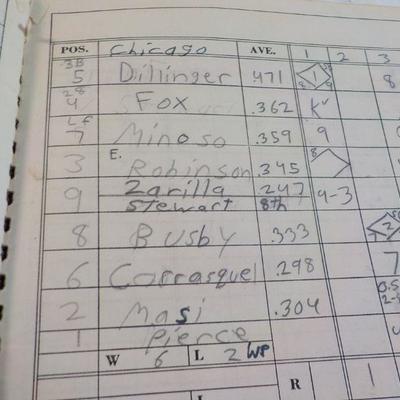 POS. Chicago AVE. 1 2 3
3B
5 Dillinger .471 1 8
2B
4 Fox .362 K
LF
7 Minoso .359 9
3 E. Robinson .345 8
9 Zarilla .247 9-3
Stewart 8th
8 Busby .333 2
6 Carrasquel .298 7
2 Masi .304
1 Pierce
W 6 L 2 WP
R 1